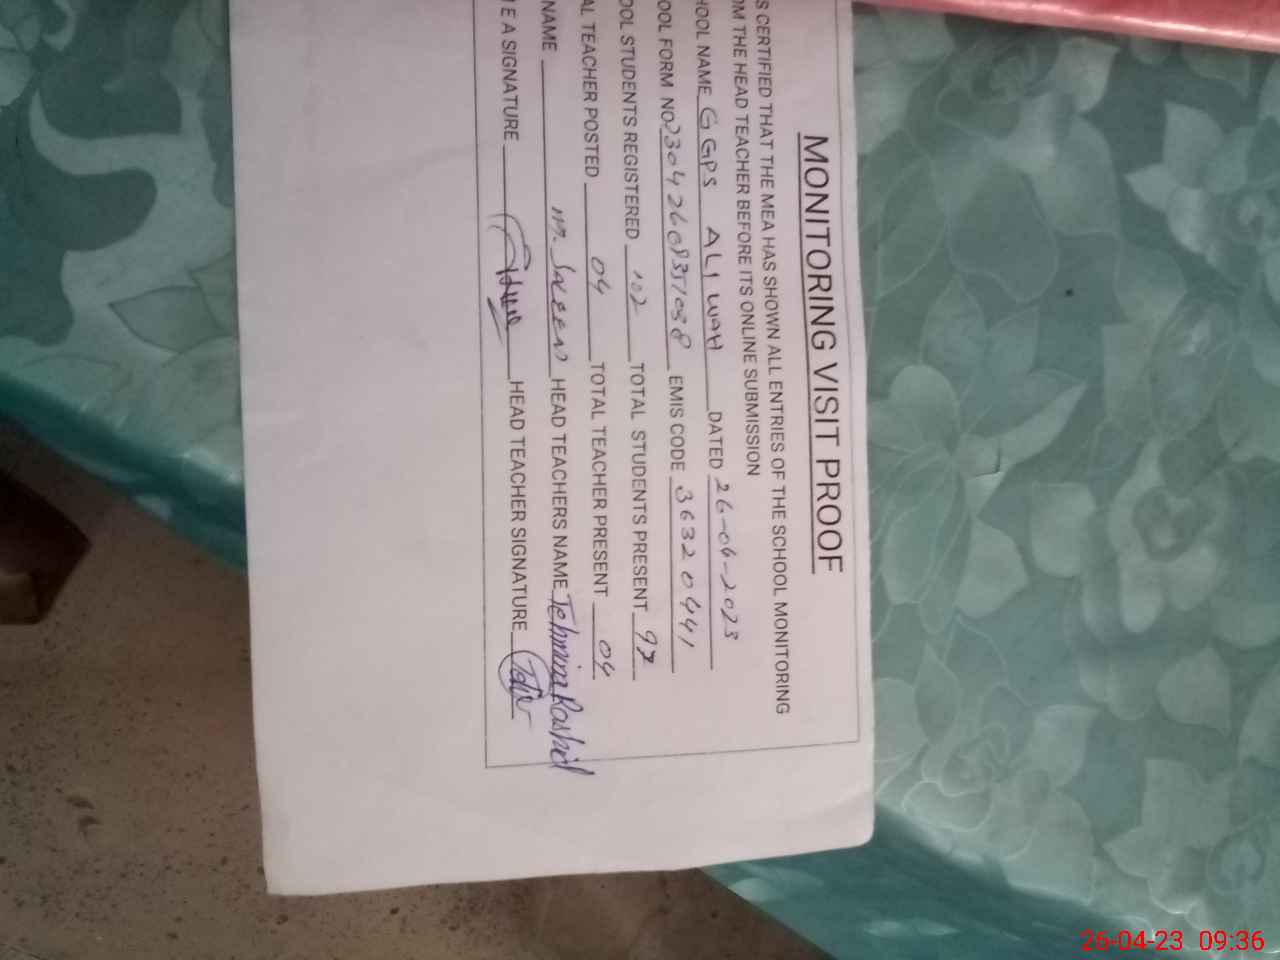 MONITORING VISIT PROOF
S CERTIFIED THAT THE MEA HAS SHOWN ALL ENTRIES OF THE SCHOOL MONITORING
OM THE HEAD TEACHER BEFORE ITS ONLINE SUBMISSION
HOOL NAME GGPS ALI WAH DATED 26-04-2023
OOL FORM NO EMIS CODE 36320441
OOL STUDENTS REGISTERED 102 TOTAL STUDENTS PRESENT 97
AL TEACHER POSTED 04 TOTAL TEACHER PRESENT 04
NAME M. Saleem HEAD TEACHERS NAME Tehmina Rashid
E A SIGNATURE HEAD TEACHER SIGNATURE
26-04-23 09:36